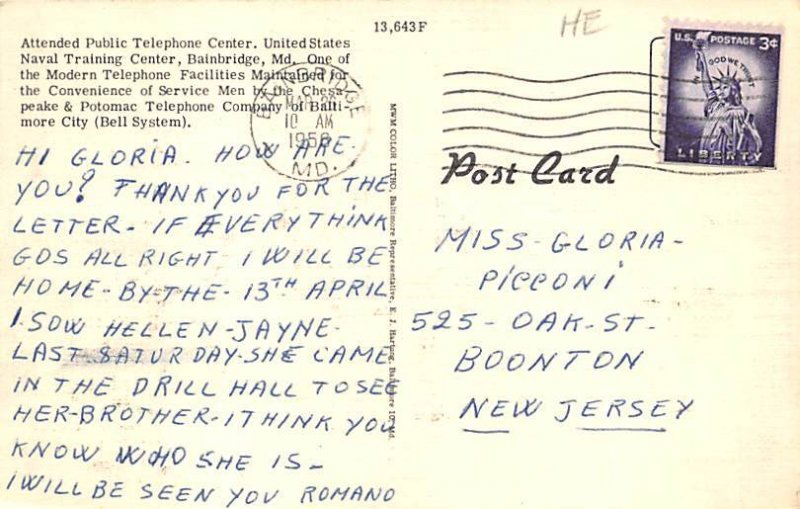 13,643F
HE
Attended Public Telephone Center. United States
Naval Training Center, Bainbridge, Md. One of
the Modern Telephone Facilities Maintained for
the Convenience of Service Men by the Chesa-
peake & Potomac Telephone Company of Balti-
more City (Bell System).
BAINBRIDGE
10 AM
MD.
U.S. POSTAGE 3¢
IN GOD WE TRUST
LIBERTY
Post Card
HI GLORIA. HOW ARE.
YOU? THANKYOU FOR THE
LETTER- IF EVERYTHINK
GOS ALL RIGHT I WILL BE
HOME-BY-THE- 13TH APRIL
I SOW HELLEN-JAYNE-
LAST SATURDAY-SHE CAME
IN THE DRILL HALL TO SEE
HER-BROTHER-I THINK YOU
KNOW WHO SHE IS-
I WILL BE SEEN YOU ROMANO
MWM COLOR LITHO. Baltimore Representative, E. J. Hartung, Baltimore 10, Md.
MISS-GLORIA-
PICCONI
525-OAK-ST-
BOONTON
NEW JERSEY